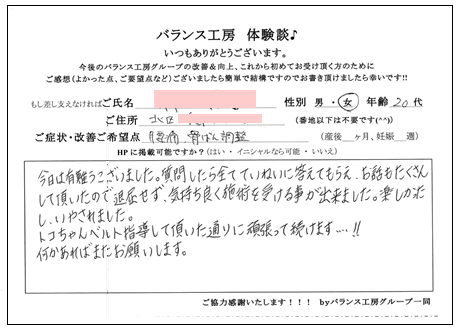 バランス工房 体験談♪
いつもありがとうございます。
今後のバランス工房グループの改善＆向上、これから初めてお受け頂く方のために
ご感想（よかった点、ご要望点など）ございましたら簡単で結構ですのでお書き頂けましたら幸いです!!
もし差し支えなければご氏名 性別 男・女 年齢 20代
ご住所 北区 （番地以下は不要です^^）
ご症状・改善ご希望点 腰痛 骨ばん調整 （産後 ヶ月、妊娠 週）
HPに掲載可能ですか？（はい・イニシャルなら可能・いいえ）
今日は有難うございました。質問したら全てていねいに答えてもらえ、お話もたくさん
して頂いたので退屈せず、気持ち良く施術を受ける事が出来ました。楽しかった
し、いやされました。
トコちゃんベルト指導して頂いた通りに頑張って続けます…!!
何かあればまたお願いします。
ご協力感謝いたします！！！ byバランス工房グループ一同